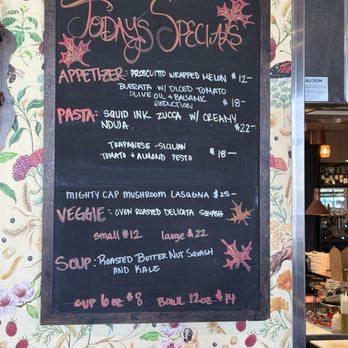 Today's Specials
APPETIZER: PROSCUITO WRAPPED MELON $12-
BURRATA W/ DICED TOMATO
OLIVE OIL + BALSAMIC
REDUCTION $18-
PASTA: SQUID INK ZUCCA W/ CREAMY
NDUJA $22-
TRAPANESE-SICILIAN
TOMATO + ALMOND PESTO $18-
MIGHTY CAP MUSHROOM LASAGNA $25-
VEGGIE: OVEN ROASTED DELICATA SQUASH
small $12 large $22
SOUP: ROASTED BUTTERNUT SQUASH
AND KALE
CUP 6oz $8 BOWL 12oz $14
CAUTION